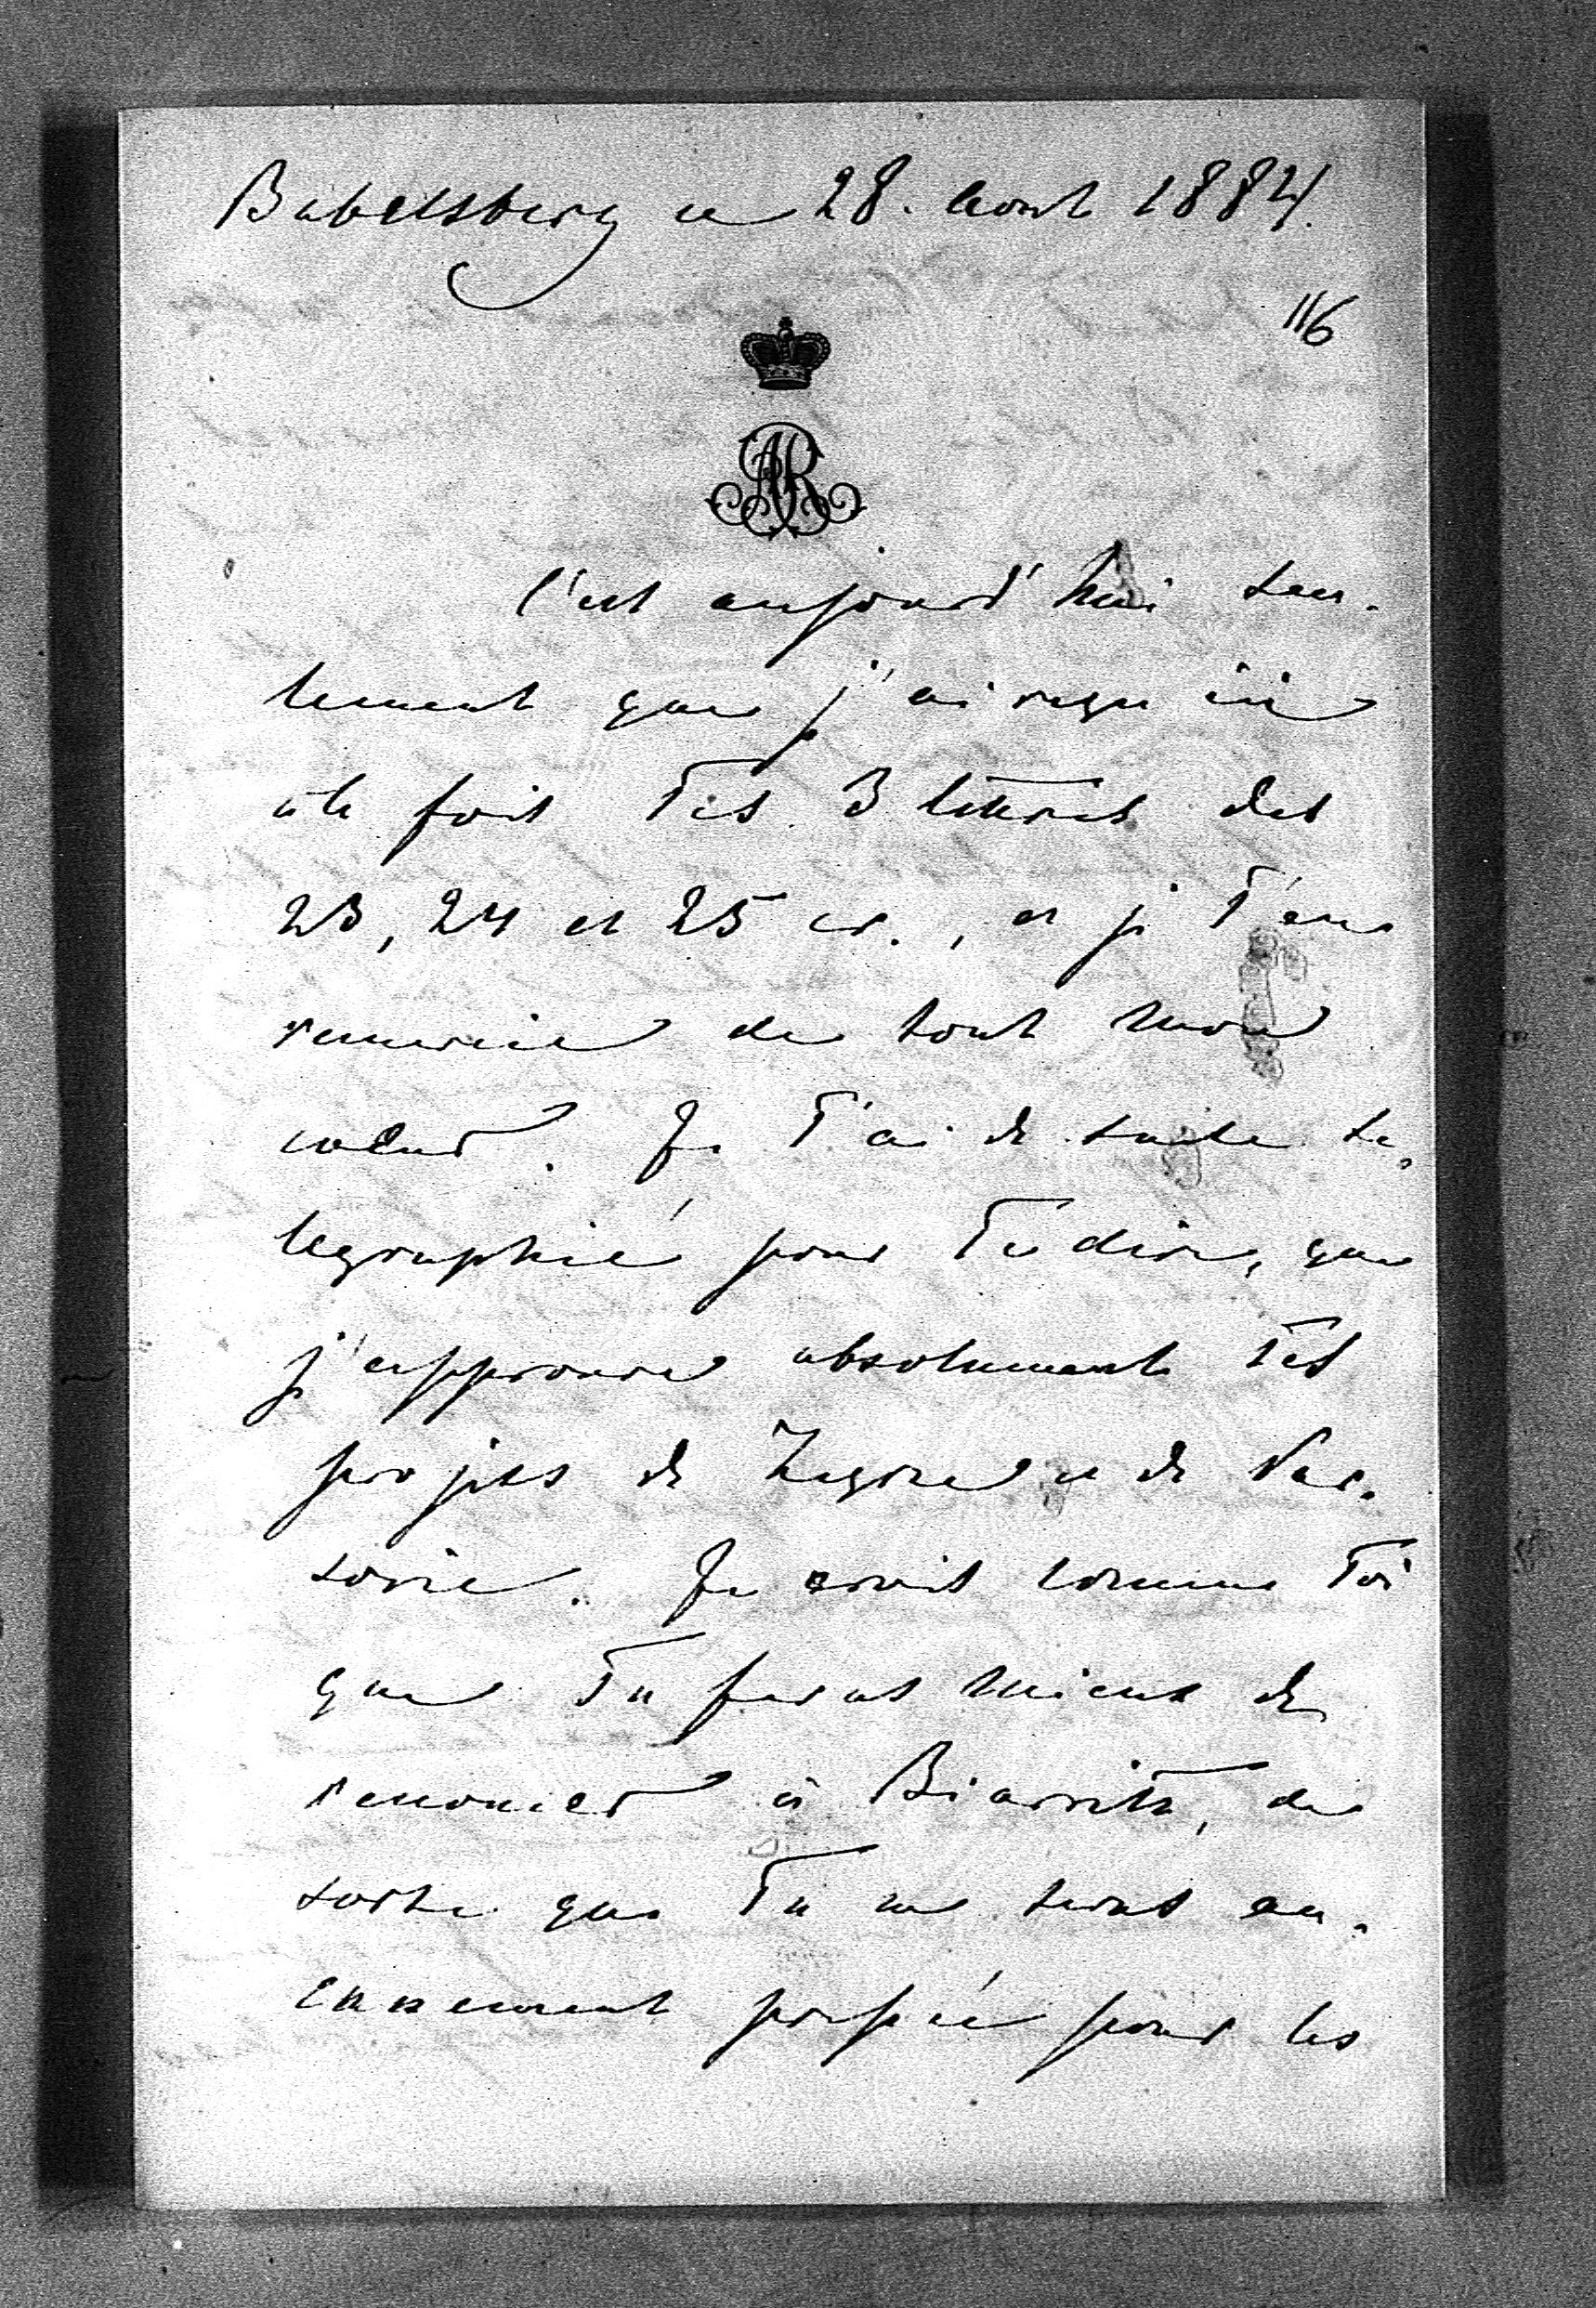 Babelsberg ce 28. Aout 1884.
116
AR
C'est aujourd'hui seu-
lement que j'ai reçu ici
à la fois Tes 3 lettres des
23, 24 et 25 cr., et je T'en
remercie de tout mon
coeur. Je T'ai de suite te-
legraphié pour Te dire, que
j'approuve absolument Tes
projets de et de
Je crois comme Toi
que Tu feras mieux de
renoncer à Biarritz, de
sorte que Tu ne seras au-
cunement pour les